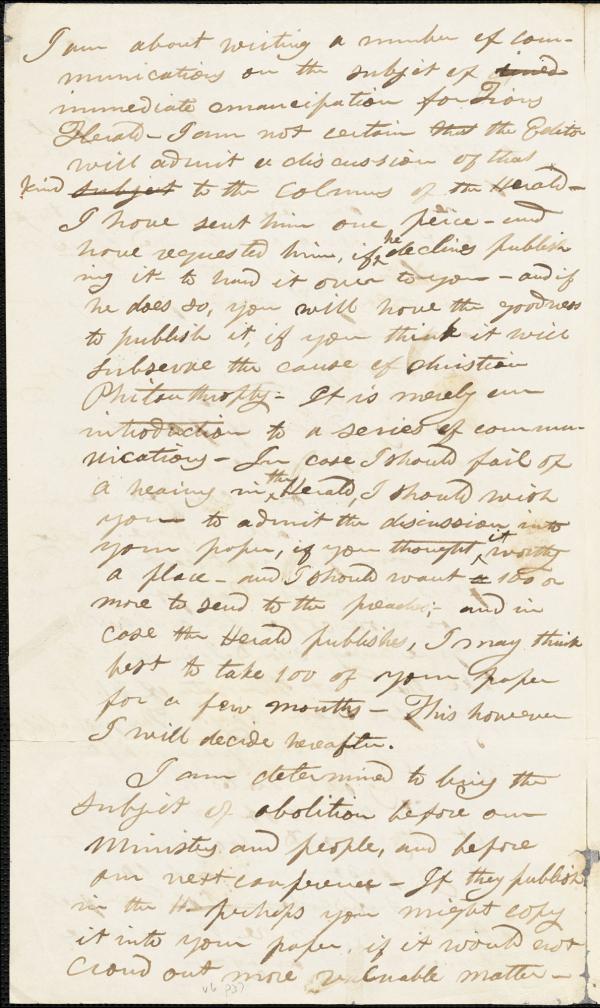 I am about writing a number of com-
munications on the subject of
immediate emancipation for Zions
Herald - I am not certain that the Editor
will admit a discussion of that
kind subject to the Colmns of the Herald -
I have sent him one peice - and
have requested him, if he declines publish
ing it to hand it over to you - and if
he does so, you will have the goodness
to publish it, if you think it will
subserve the cause of christian
Philanthropy - It is merely an
introduction to a series of commu-
nications - In case I should fail of
a hearing in the Herald, I should wish
you to admit the discussion into
your paper, if you thought it worthy
a place - and I should want a 100 or
more to send to the preachers; - and in
case the Herald publishes, I may think
best to take 100 of your paper
for a few months - This however
I will decide hereafter.
I am determined to bring the
subject of abolition before our
Ministers and people, and before
our next conference - If they publish
in the H - perhaps you might copy
it into your paper, if it would not
croud out more valuable matter -